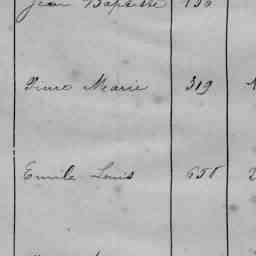 Jean Baptiste
Pierre Marie 319
Emile Louis 658